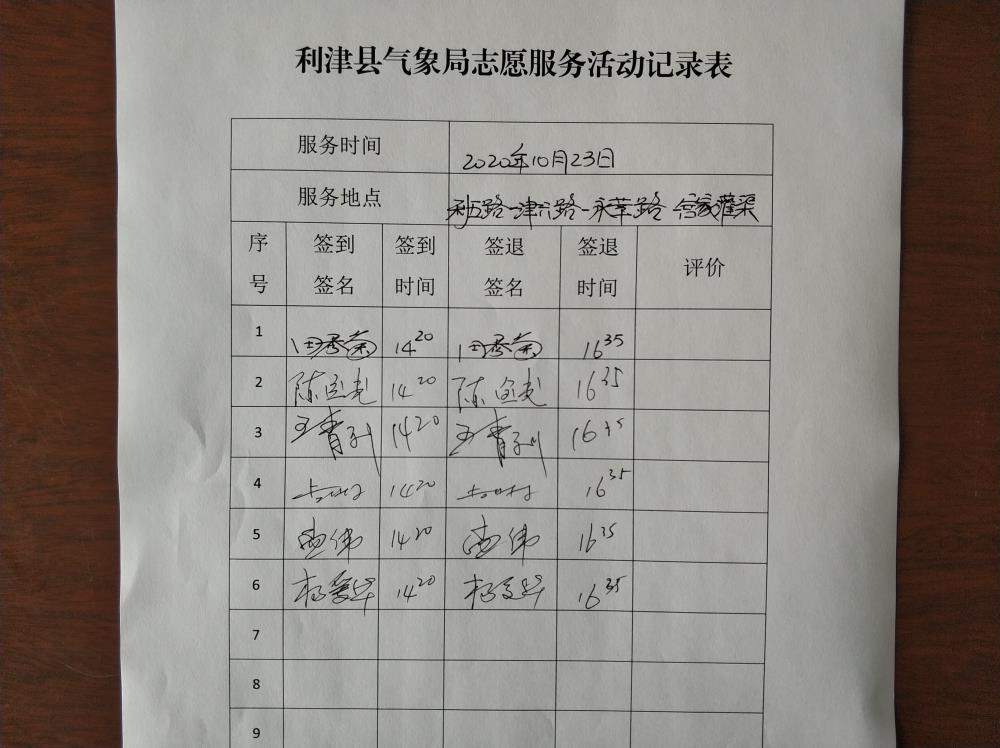 利津县气象局志愿服务活动记录表
服务时间 2020年10月23日
服务地点 利五路-津六路-永莘路-宫家灌渠
序号 签到签名 签到时间 签退签名 签退时间 评价
1 田秀菊 14 20 田秀菊 16 35
2 陈 14 20 陈 16 35
3 王青利 14 20 王青利 16 35
4 14 20 16 35
5 伟 14 20 伟 16 35
6 杨爱华 14 20 杨爱华 16 35
7
8
9